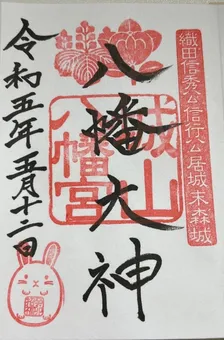 織田信秀公信行公居城末森城
城山
八幡宮
八幡大神
令和五年五月十二日